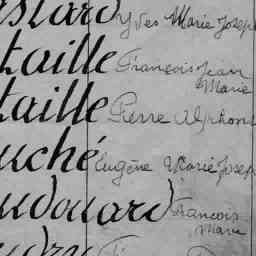 Yves Marie Joseph
taille François Jean
Marie
taille Pierre Alphons
uché Eugène Marie Josep
udouard François
Marie